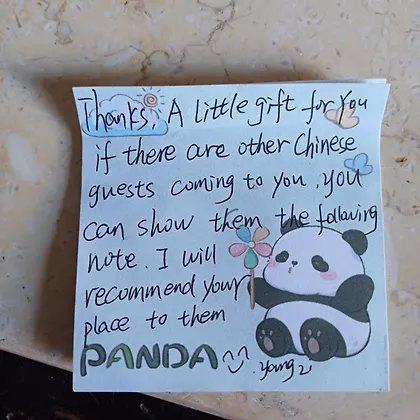 Thanks, A little gift for You
if there are other Chinese
guests coming to you, you
can show them the following
note. I will
recommend your
place to them
PANDA